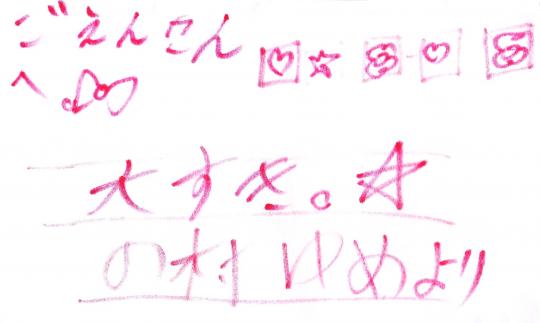 ごえんさん
へ
大すき。☆
の村ゆめより